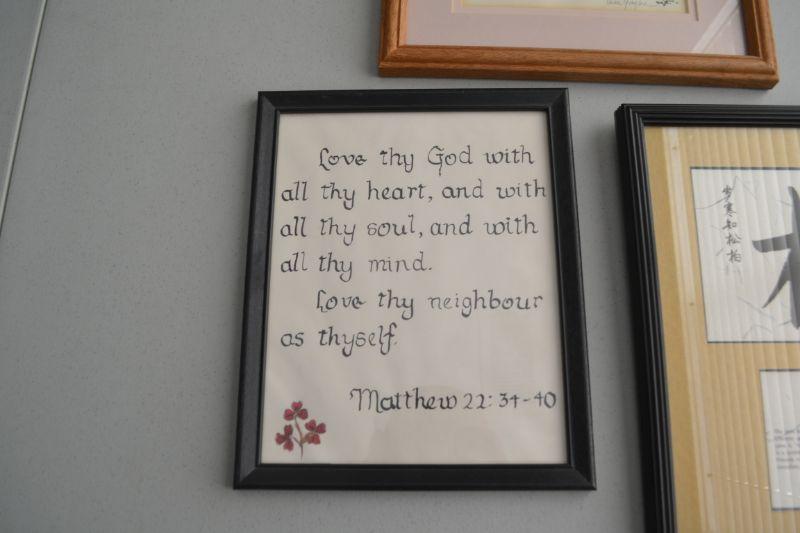 Love thy God with
all thy heart, and with
all thy soul, and with
all thy mind.
Love thy neighbour
as thyself.
Matthew 22:34-40
岁寒知松柏